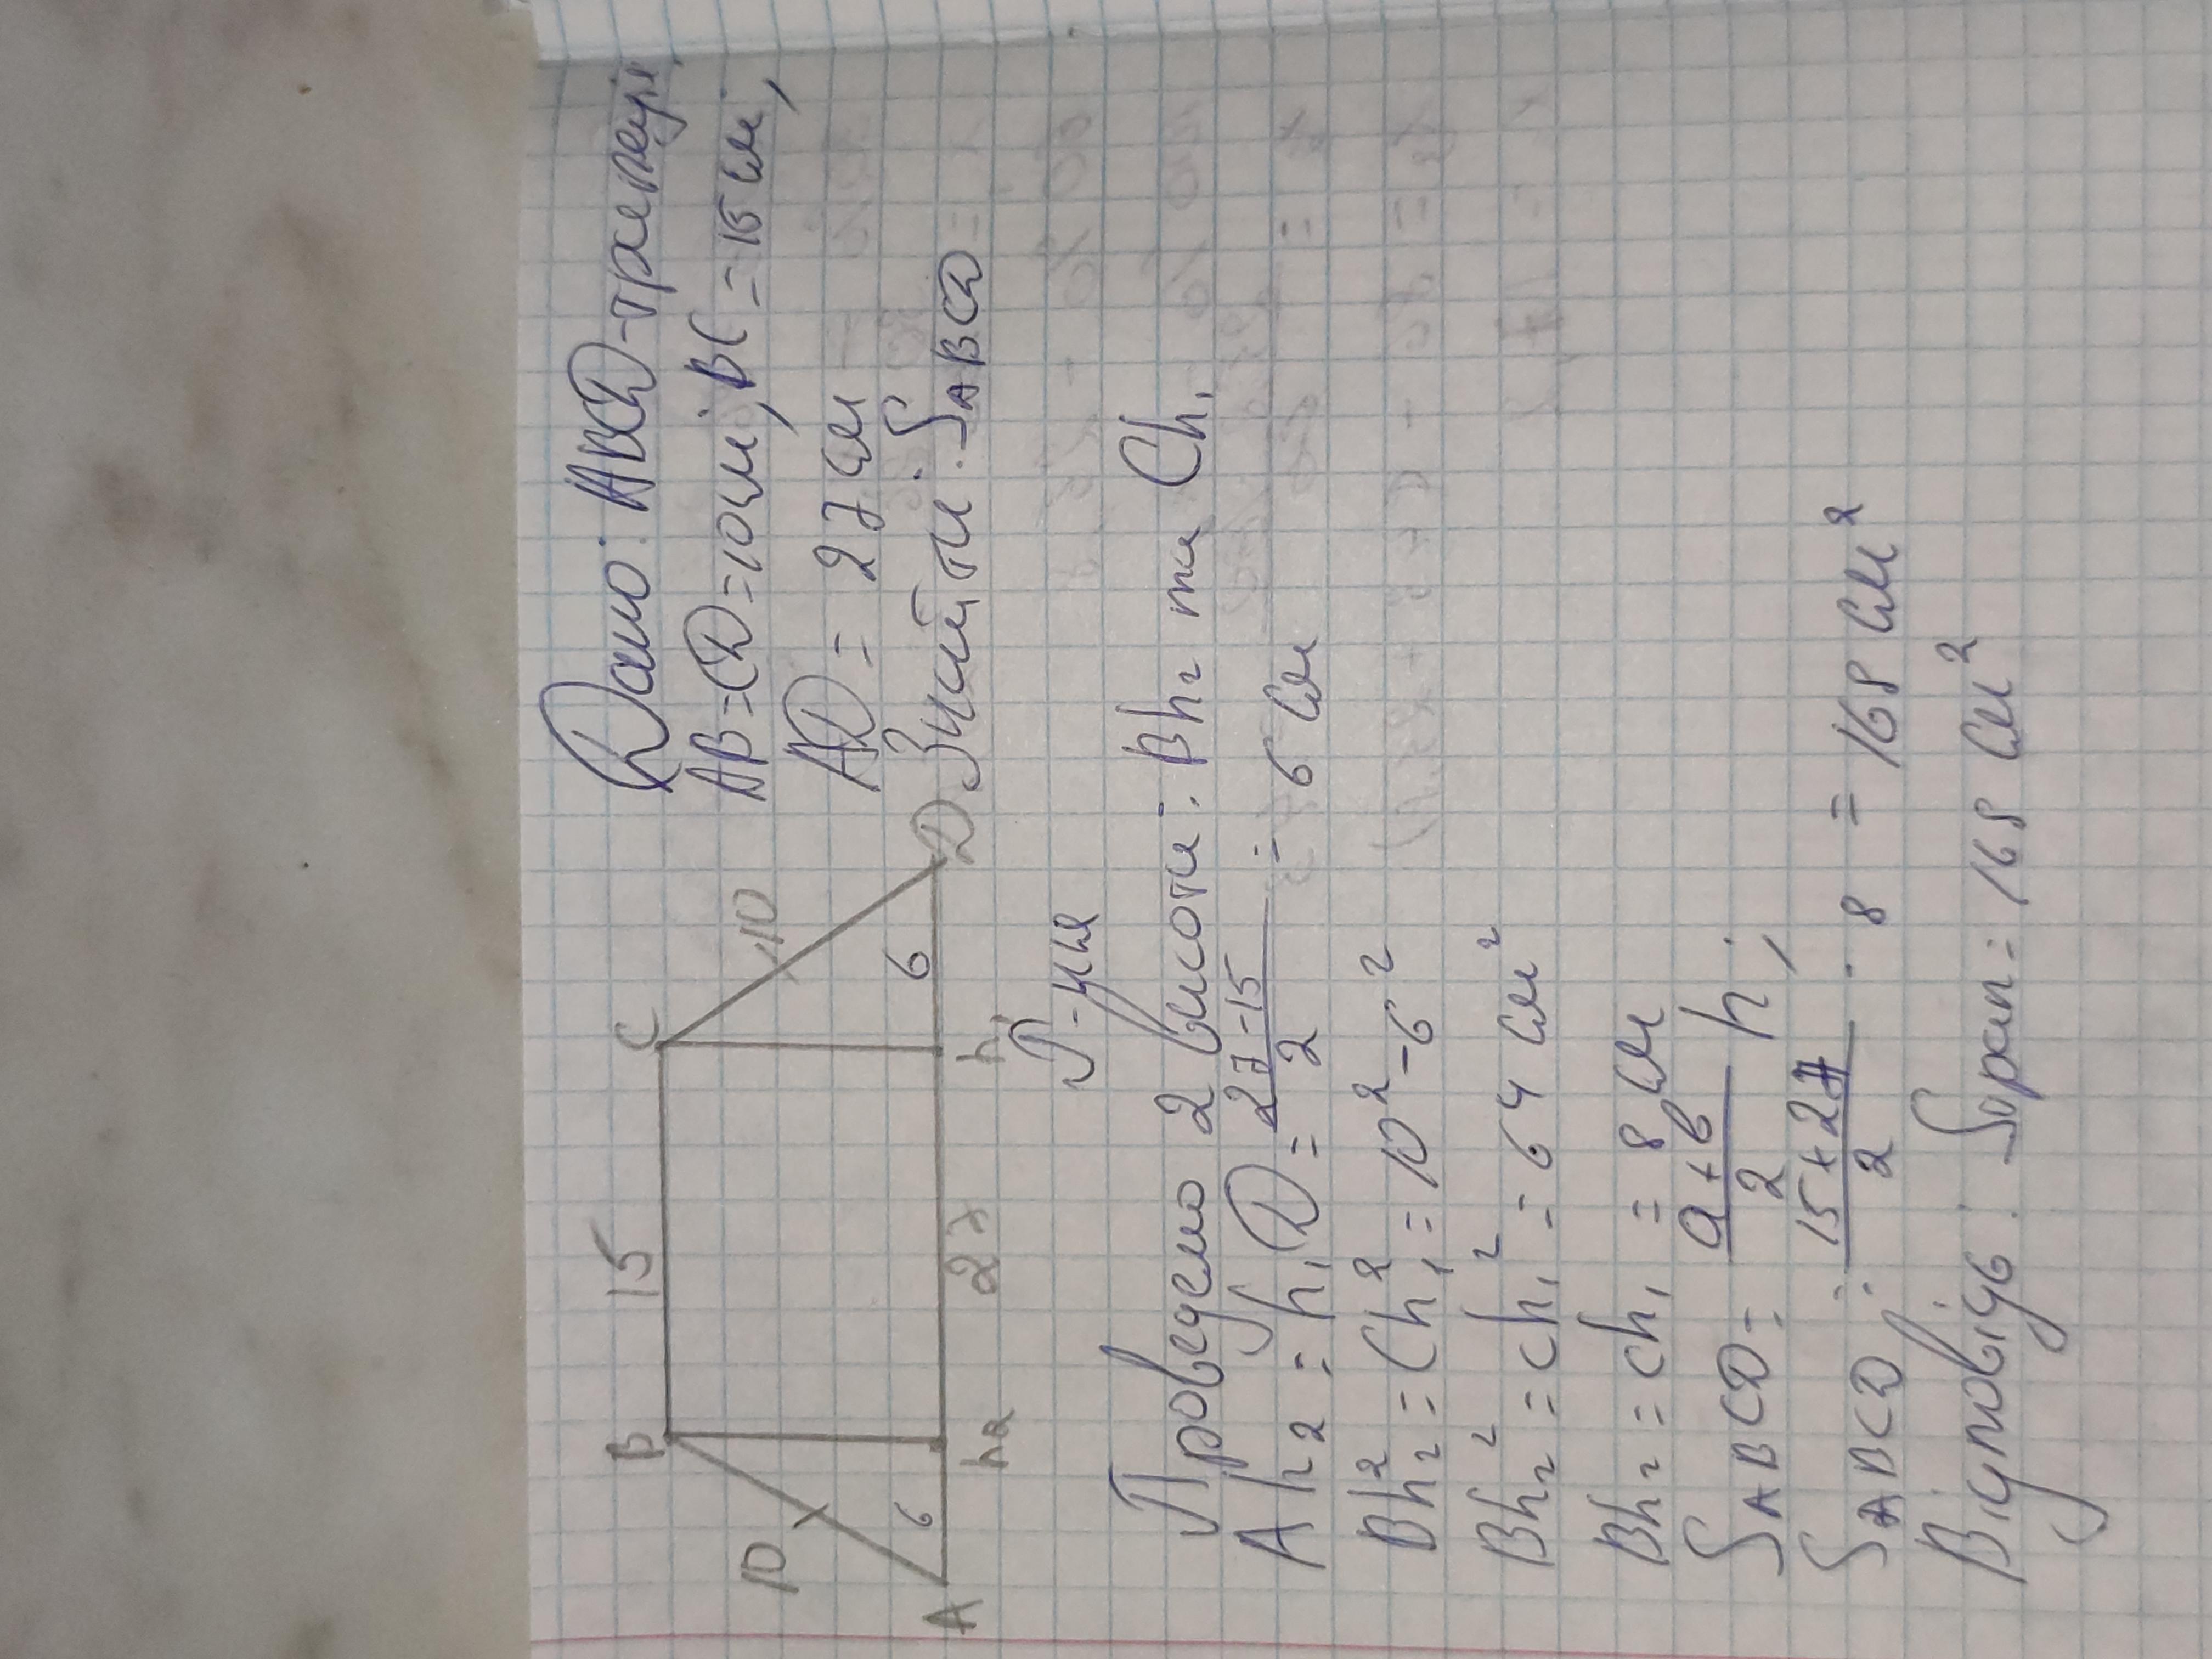 Дано: ABCD-трапеція,
AB=CD=10см, BC=15см,
AD=27см
Знайти: SABCD
B 15 C
10 10
6 6
A h2 27 h1 D
Р-ння
Проведемо 2 висоти: Bh2 та Ch1
Ah2=h1D=27-15/2=6см
Bh2²=Ch1²=10²-6²
Bh2²=Ch1²=64см²
Bh2=Ch1=8см
SABCD=a+b/2 h;
SABCD=15+27/2·8=168см²
Відповідь: Sтрап=168см²